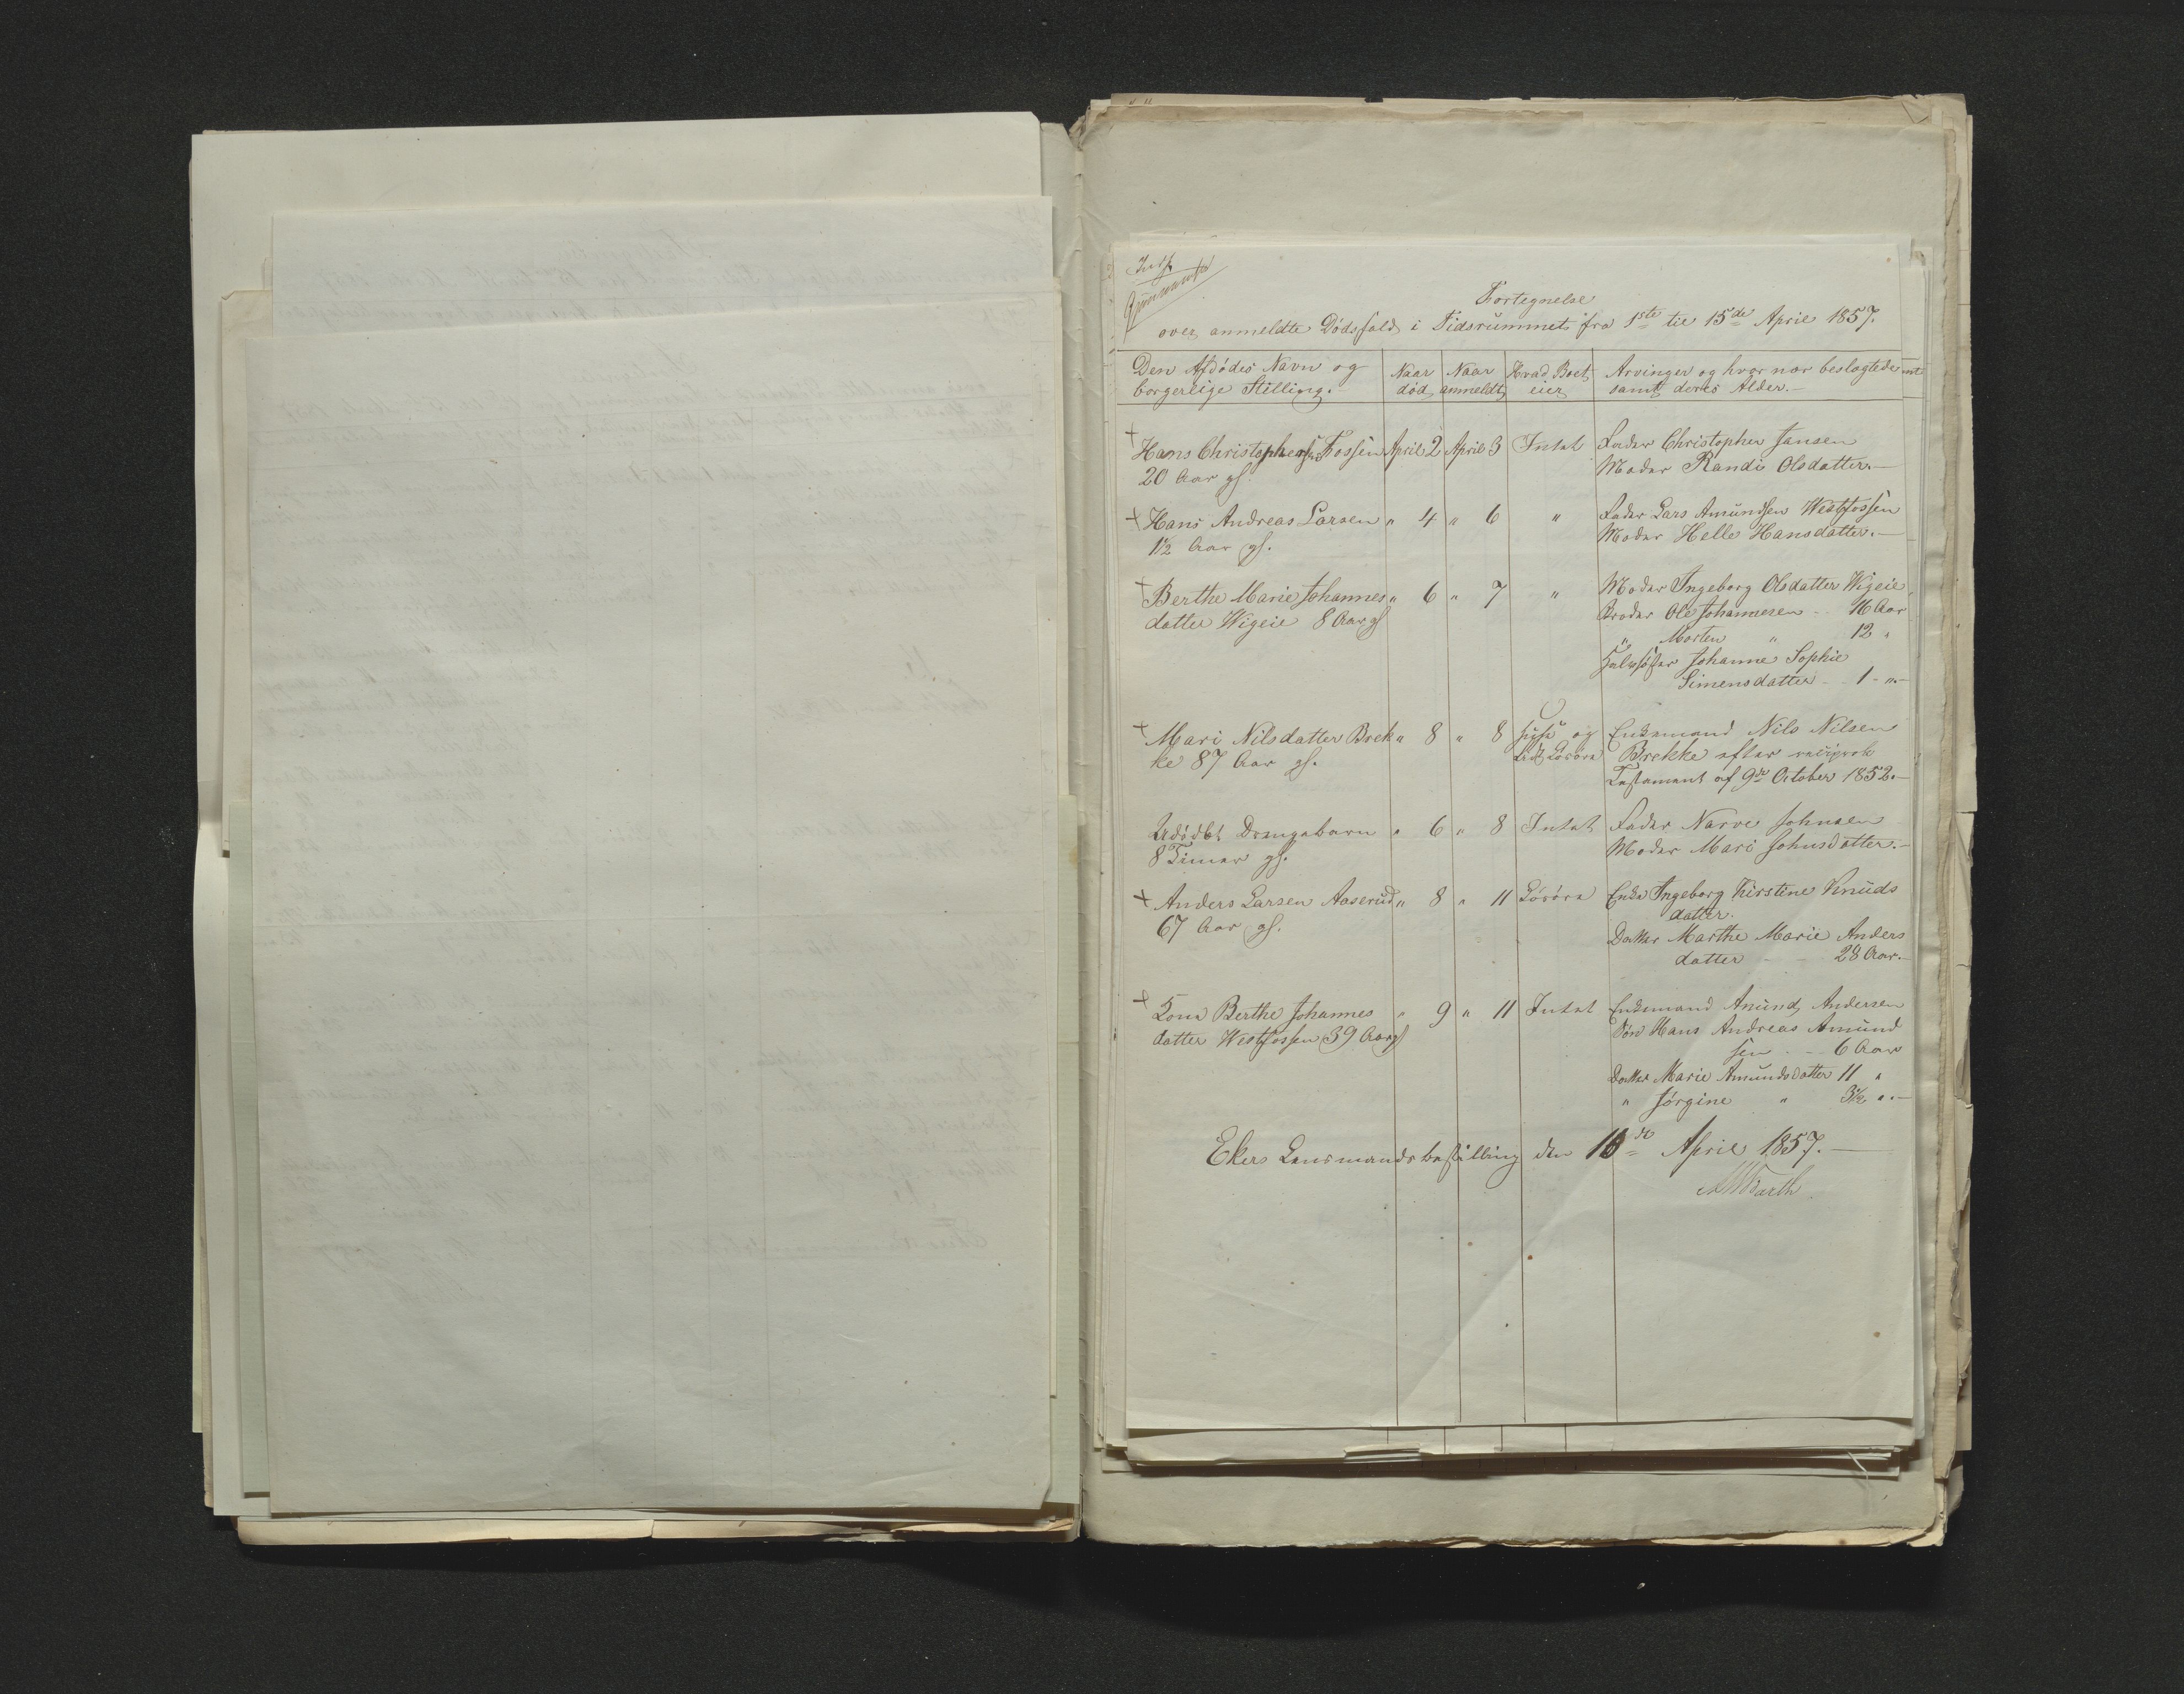 Fortegnelse
over anmeldte Dödsfald i Tidsrummet fra 1ste til 15de April 1857.
Den Afdödes Navn og borgerlige Stilling.
Naar död
Naar anmeldt
Hvad Boet eier
Arvinger og hvor nær beslægtede
samt deres Alder.-
+ Hans Christophersen Fossen April 2 April 3 Intet Fader Christopher Jansen
20 Aar gl. Moder Randi Olsdatter.-
+ Hans Andreas Larsen " 4 " 6 " Fader Lars Amundsen Westfossen
1½ Aar gl. Moder Helle Hansdatter.-
+ Berthe Marie Johannes " 6 " 7 " Moder Ingeborg Olsdatter Wigeie
datter Wigeie 8 Aar gl Broder Ole Johannesen - 16 Aar
" Morten " 12 "
Halvsöster Johanne Sophie
Simensdatter - 1 - ".-
+ Mari Nilsdatter Brek " 8 " 8 og Enkemand Nils Nilsen
ke 87 Aar gl. Lösöre Brekke efter reciprok
Testament af 9de October 1852.-
Udöbt Drengebarn " 6 " 8 Intet Fader Narve Johnsen
8 Timer gl. Moder Mari Johnsdatter.-
+ Anders Larsen Aaserud " 8 " 11 Lösöre Enke Ingeborg Kirstine Knuds
67 Aar gl. datter.
Datter Marthe Marie Anders
datter - - 28 Aar.-
+ Kone Berthe Johannes " 9 " 11 Intet Enkemand Amund Andersen
datter Westfossen 39 Aar gl Sön Hans Andreas Amund
sen - - 6 Aar
Datter Marie Amundsdatter 11 "
" Jörgine " 3½ ".-
Ekers Lensmandsbestilling den 16de April 1857.-